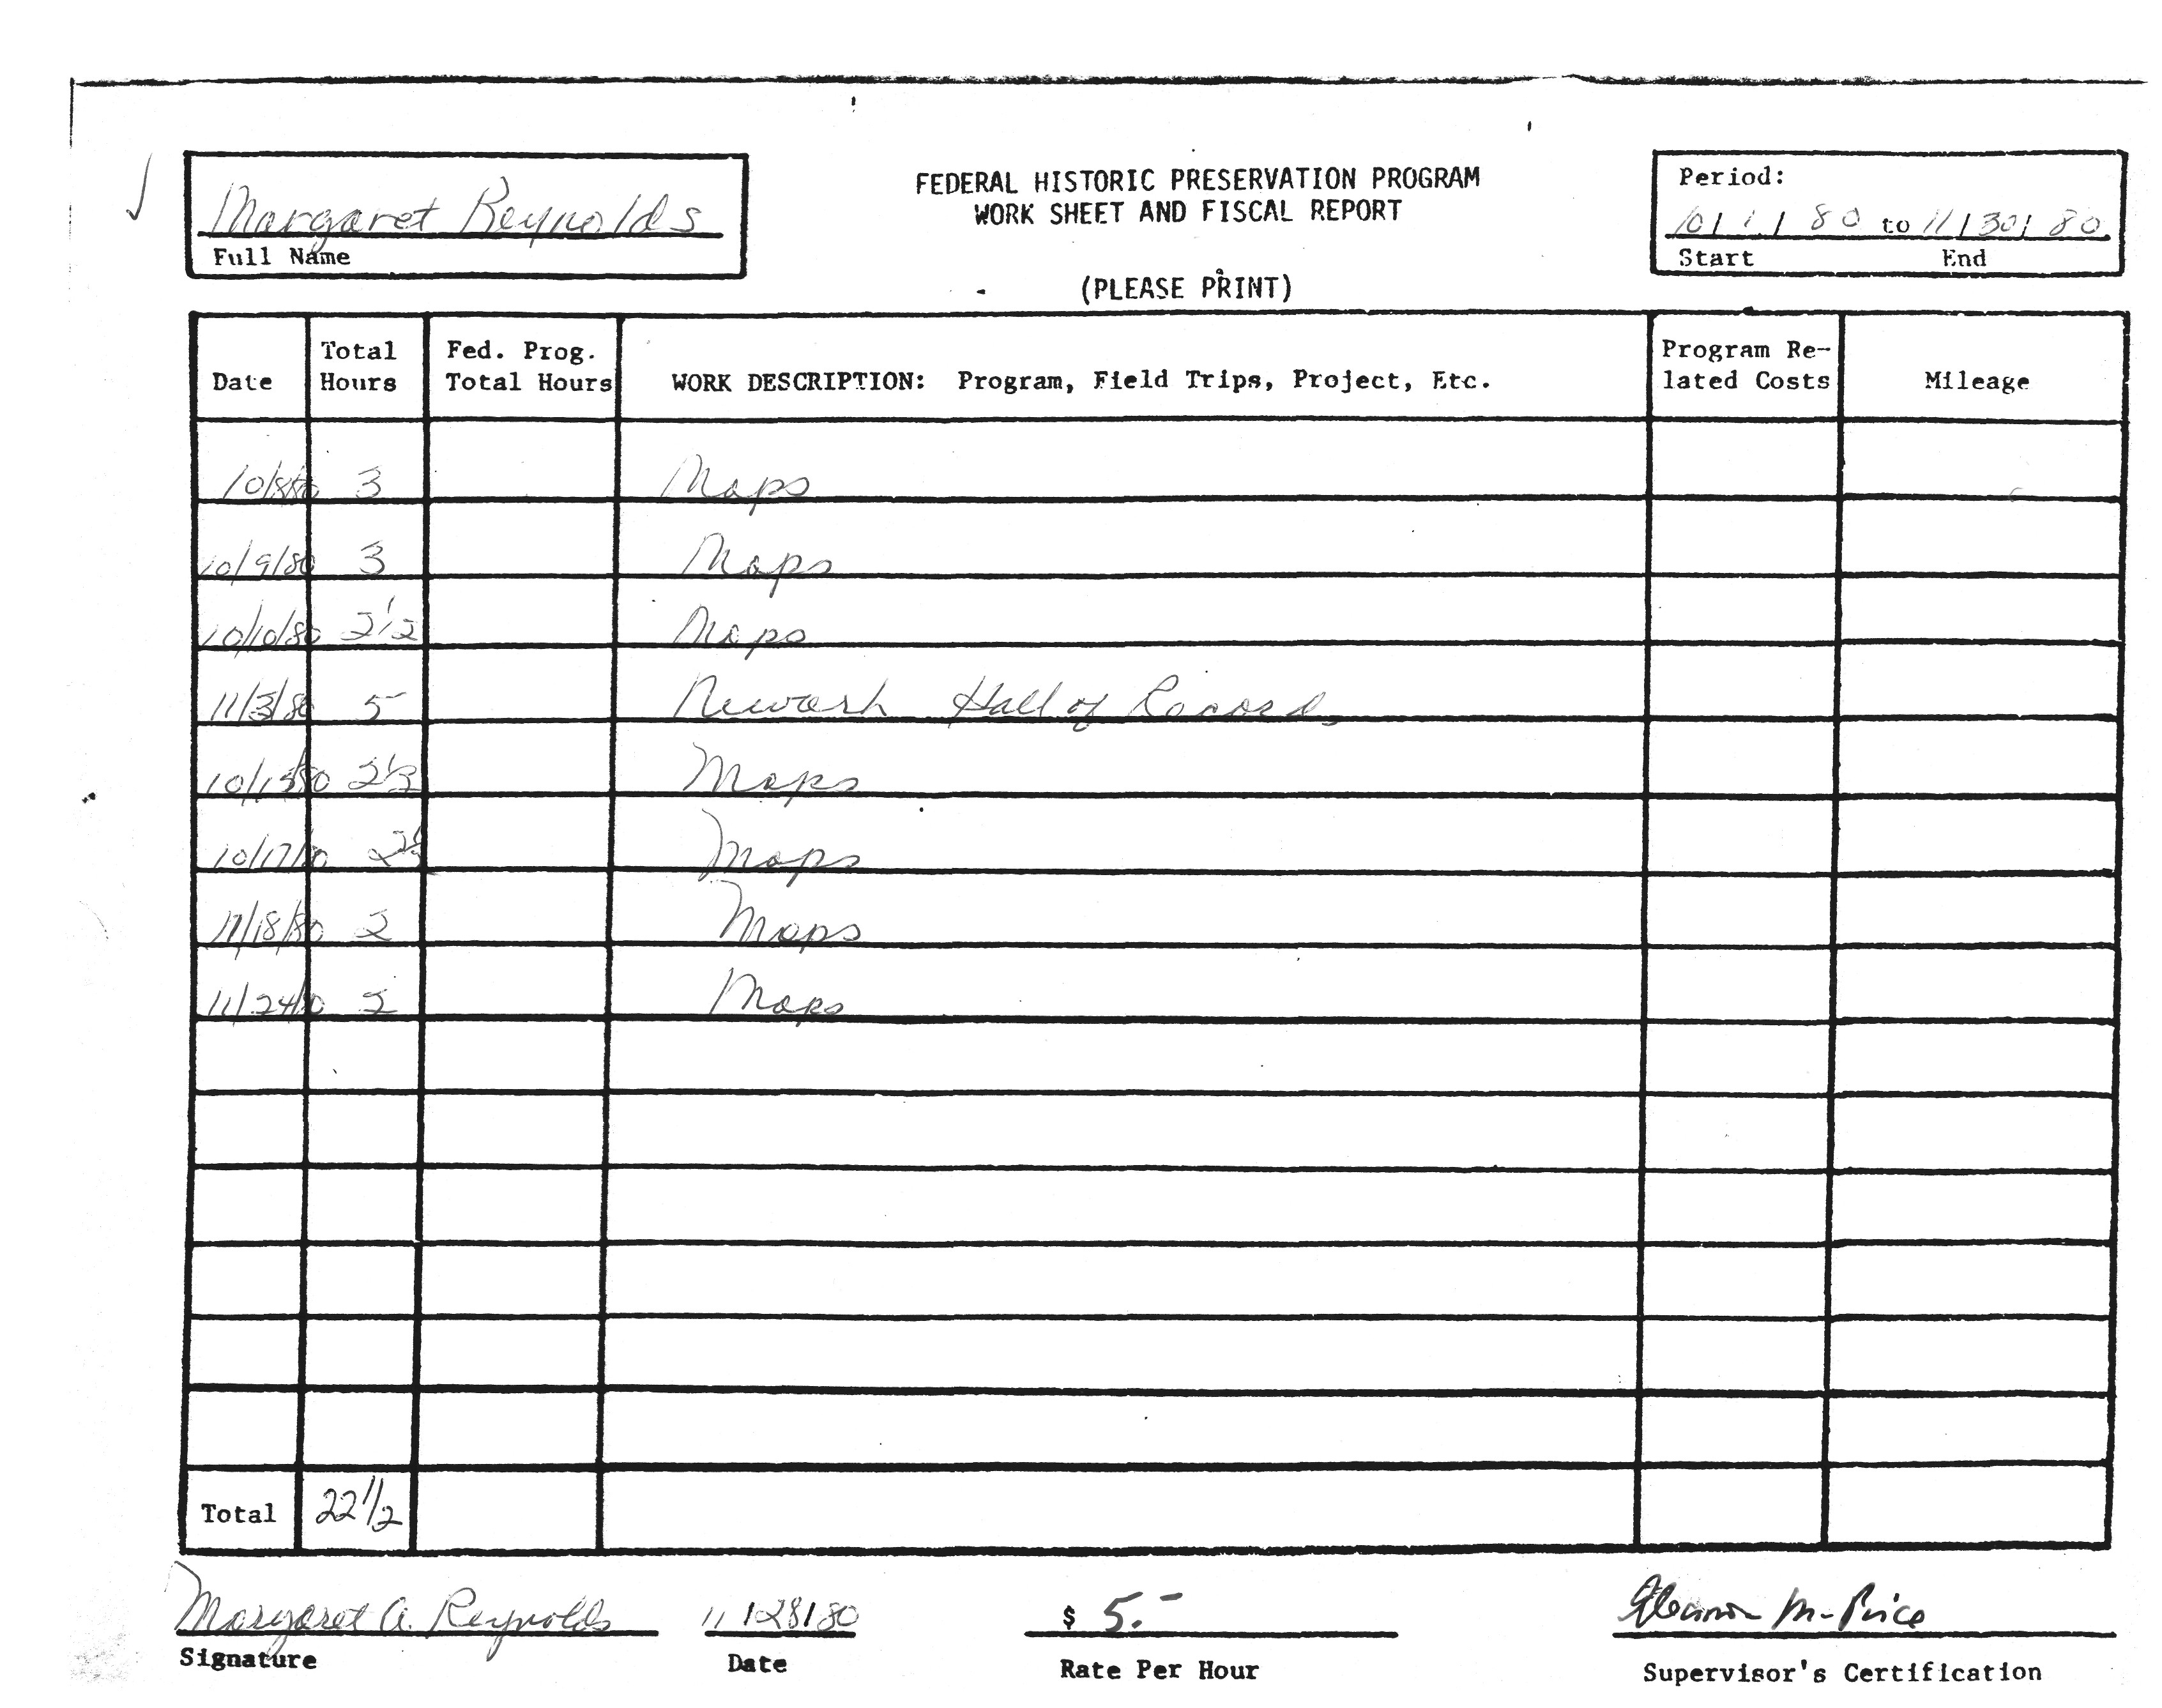 Margaret Reynolds
Full Name
FEDERAL HISTORIC PRESERVATION PROGRAM
WORK SHEET AND FISCAL REPORT
(PLEASE PRINT)
Period:
10/1/80 to 11/30/80
Start End
Date Total Hours Fed. Prog. Total Hours WORK DESCRIPTION: Program, Field Trips, Project, Etc. Program Re-lated Costs Mileage
10/8/80 3 Maps
10/9/80 3 Maps
10/10/80 2 1/2 Maps
11/3/80 5 Newark Hall of Records
10/15/80 2 1/2 Maps
10/17/80 2 1/2 Maps
11/18/80 2 Maps
11/24/80 2 Maps
Total 22 1/2
Margaret A. Reynolds 11/28/80 $ 5.- Eleanor M. Price
Signature Date Rate Per Hour Supervisor's Certification